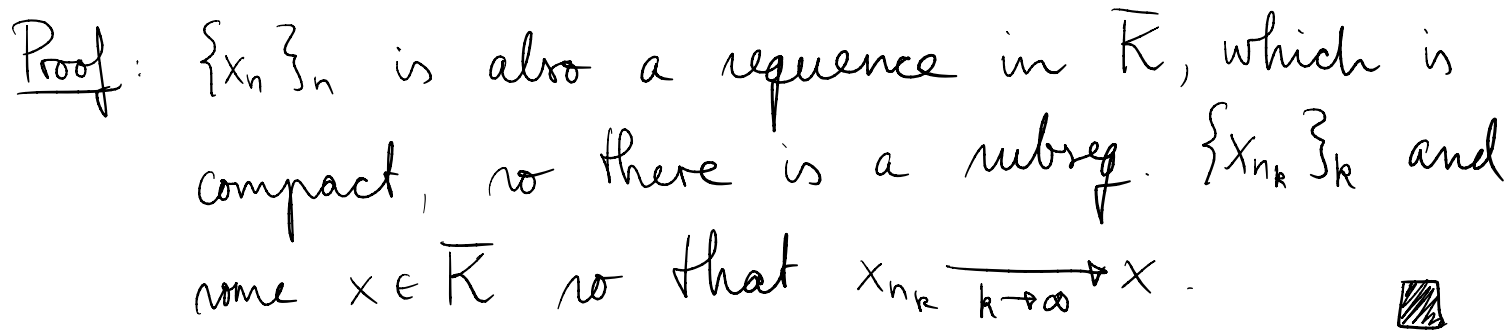 Proof: {xₙ}ₙ is also a sequence in K̅, which is
compact, so there is a subseq. {x_{n_k}}_k and
some x ∈ K̅ so that x_{n_k} ⟶_{k→∞} x.